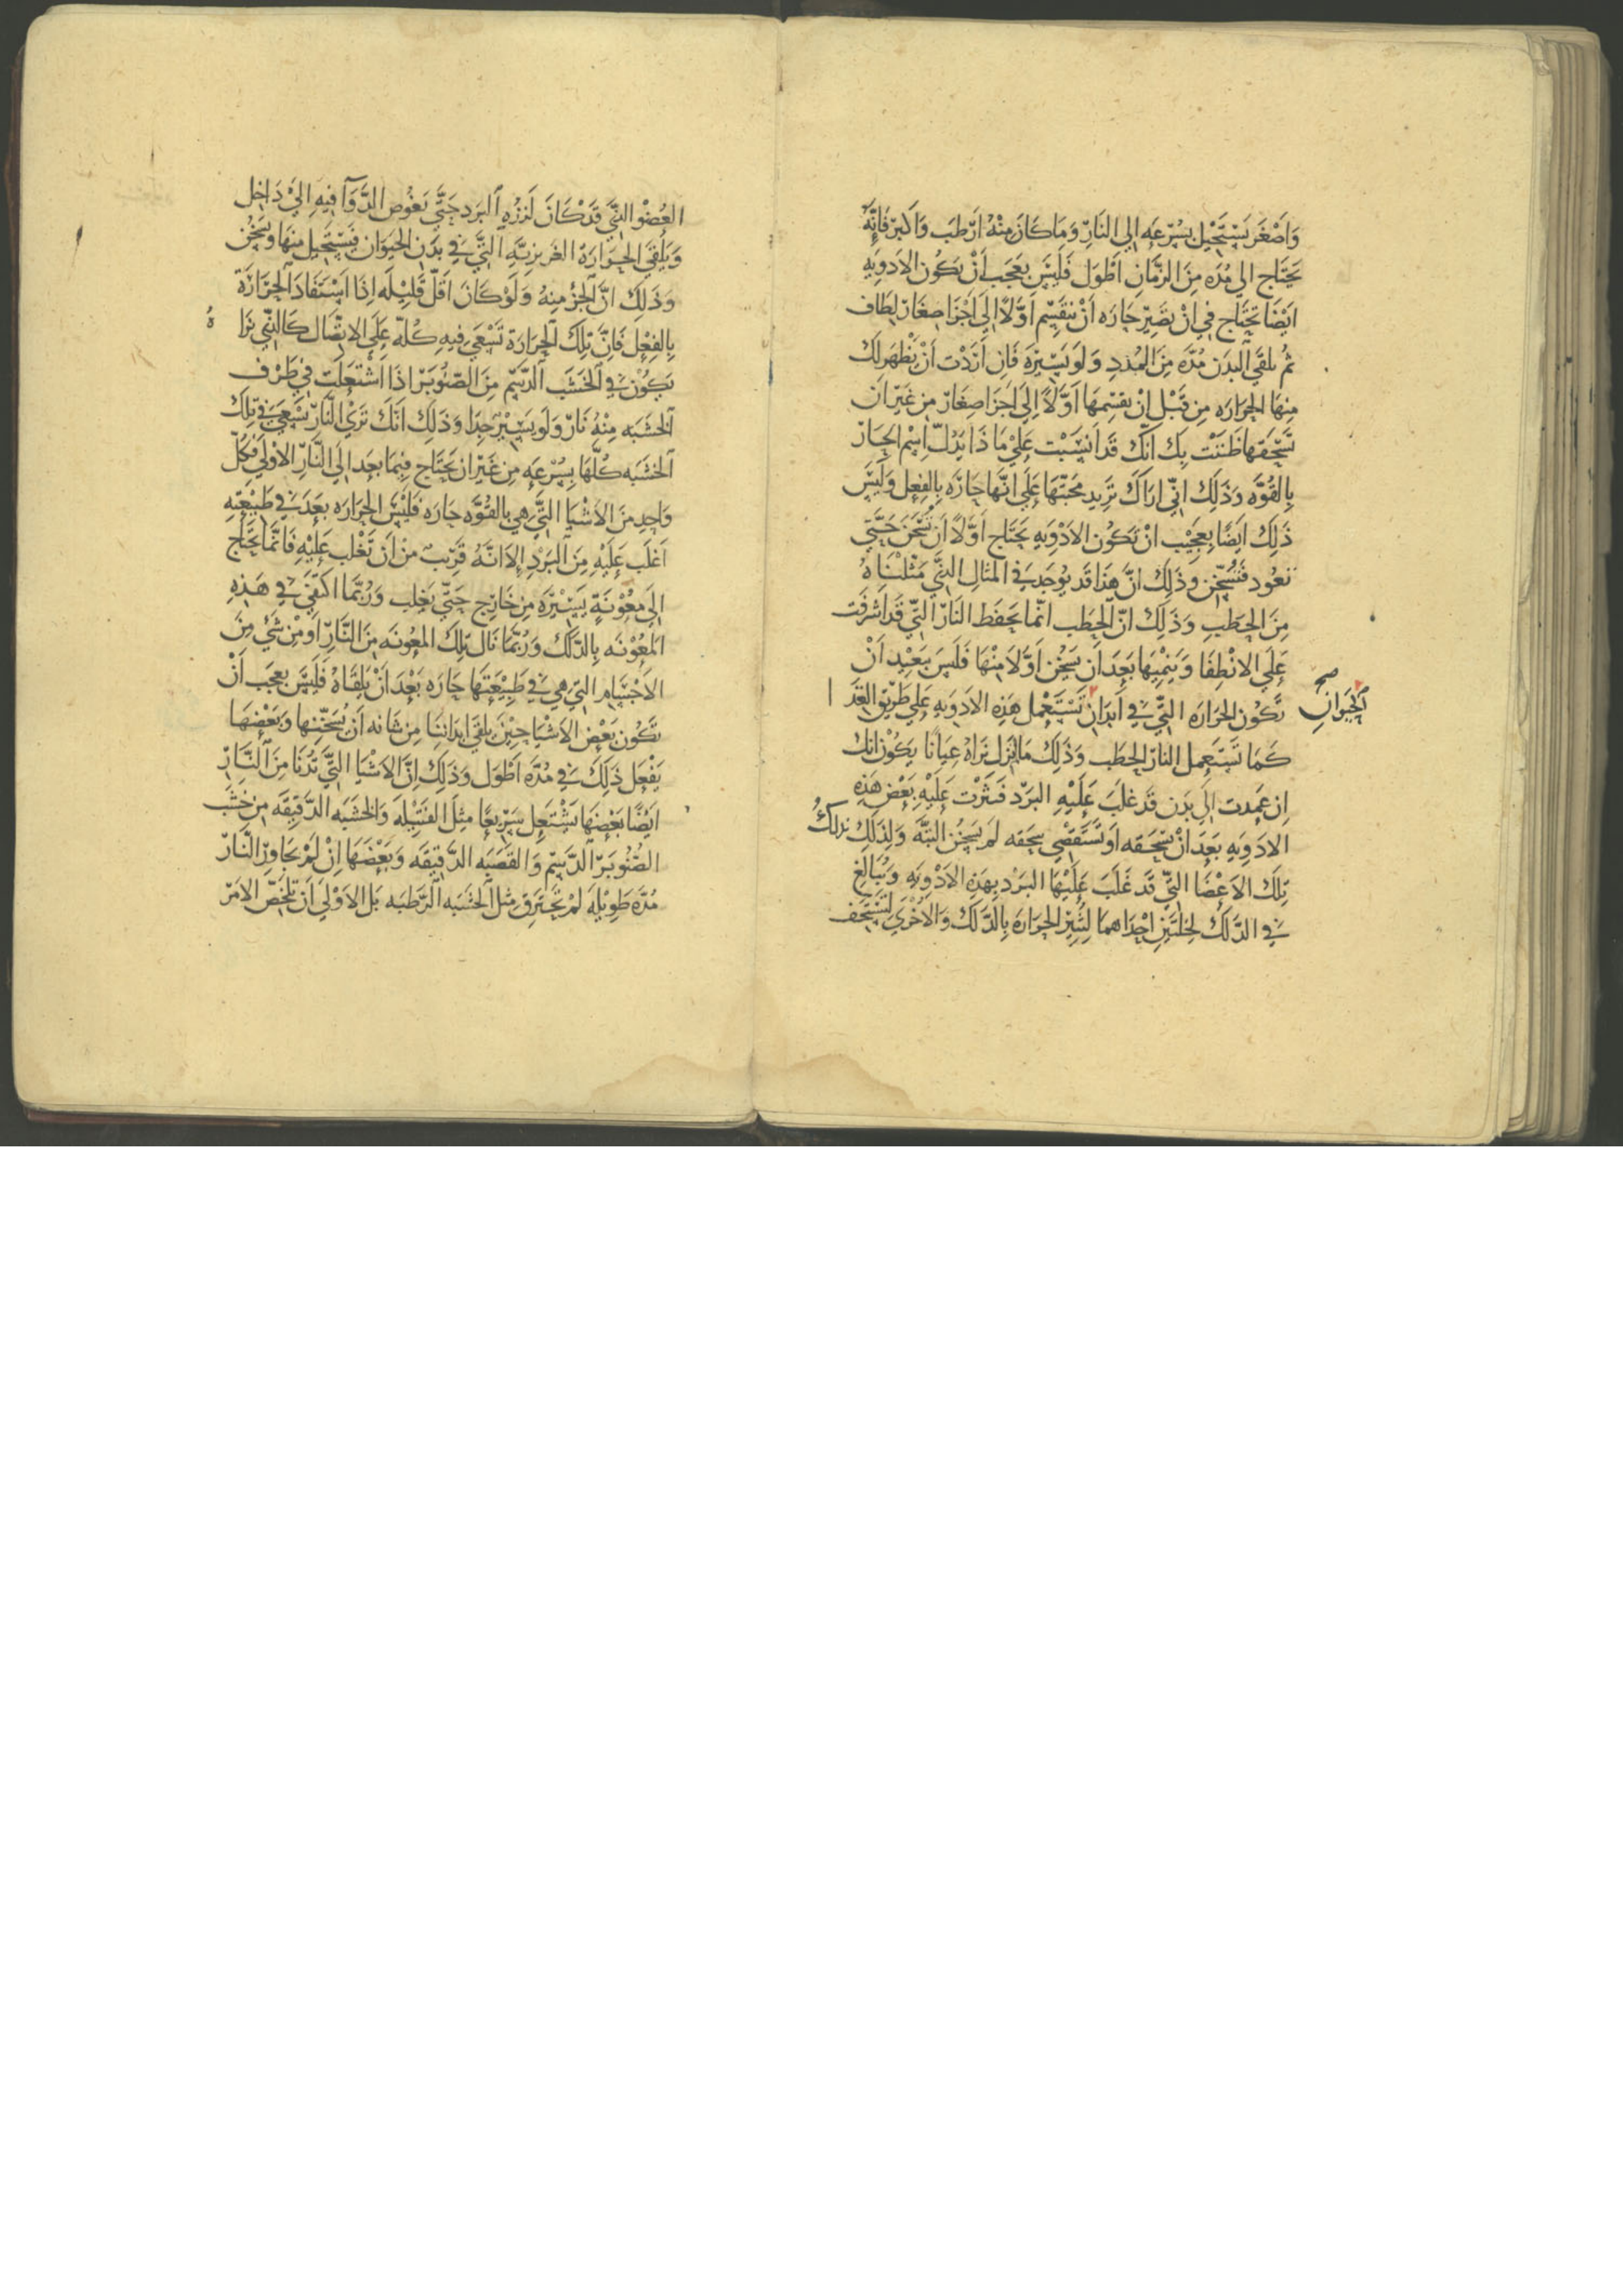 وَاصْغَر يَسْتَحْيِل بسُرْعَه إلى النَارِّ وَمَا كَانَ مِنْهُ ارّطَب وَاَكبَر فَانَّهُ
يَحتَاج الي مُدَه مِنَ الزمَانِ اَطْوَل فَلَيْسَ بعَجَب اَنْ يَكُون الاَدوِيَهِ
ايَضًا تَحتَاج فيِ اَنْ تصَيرّ حَارَه اَنْ تنقَسِم اَوَّلاً إلَي اَجْزَا صغَار لِطَاف
ثُم تلقَي البَدَن مُدَّه مِنَ المُدَدِ وَلَو يَسِيْرَه فَانِ اَرَدْت اَنْ تظْهَر لَك
مِنهَا الحرَارَه مِن قَبْل اَنْ تقسِمهَا اَوَّلاً اِلَي اَجزَا صِغَارّ مِن غَيْر انَ
تَسْحَقهَا ظنَنْت بِك انَّك قَد اُنسِيْت عَليْ مَا ذَا يَدُلّ اسْم الحَارّ
بِالقُوَّه وَذَلِك انّي ارَاكَ تُرِيد مِحنَتهَا عَلَي انّهَا حَارّه بِالفِعل وَلَيْسَ
ذَلِك اَيضًا بِعَجِيْب انْ تَكُون الاَدْوِيَهِ تَحتَاج اَوَّلاً اَنْ تُسخَنَ حَتَّي
تعُود فَتُسَخِّن وَذَلِك انّ هَذا قَد يُوجَد فِي المثَالِ الذيِ مَثَّلْنَاهُ
مِنَ الحطَبِ وَذَلِك انّ الحَطَب انّما يَحفَظ النَارّ التيّ قَد اشْرفَت
عَلَي الانْطِفَا وَيَنمِيْهَا بَعدَ اَن يَسخُن اَوّلاً مِنْهَا فَلَيس بَبَعِيْد اَنْ
تَكُون الحَرَارَه التيّ فيِ اَبدَانِ تَسْتَعْمِل هَذِه الاَدوِيَهِ عَلي طَرِّيق الغِذَا
صح
الحَيوَانِ
كَمَا تَسْتَعمِل النارّ الحطَب وَذَلِك مَا لَم نزَل نَرَاهُ عِيَانًا يَكُوْن انك
اِن عَمِدت الَي بَدَن قَد غلَبَ عَلَيْهِ البَرّد فنَثَرْت عَلَيْهِ بَعْضَ هَذِه
الادَوِيَهِ بَعدَ انْ تسْحَقه اوَ تَستَقصي سَحقه لَم يَسخُن البتَّه وَلِذَلِك تدلكُ
تِلك الاَعْضَا التيّ قَد غَلَبَ عَلَيْهَا البَرْد بِهَذِه الاَدْوِيَهِ وَيُبَالَغ
فيِ الدَّلك لِخلتَيْنِ احْدَاهما لتُثِيْر الحرَارَه بِالدَّلك وَالاُخْرَي لتسْتَحِف
العُضْو الذيّ قَد كَانَ لَززهِ البَرَد حَتَّي يَغُوص الدَّوَآ فِيْهِ إليْ دَاخِل
وَيَلْقَي الحَرَارَهْ الغَرِيزِيّهِ التيّ فيِ بدَنِ الحَيوَانِ فَيَسْتَحِيل مِنهَا وَيَسخُن
وَذَلِك انّ الجُزْ مِنهُ وَلَوْ كَانَ اقَلّ قَلِيْلَه اِذَا اسْتَفَادَ الحَرَارَةَ
بِالفِعْل فَانّ تِلك الحَرَارَة تَسْعَي فِيهِ كُلّه عَلَي الاتِصَال كَالذيّ نرَاهُ
يَكُوْن فيِ الخَشَب الدَّسِمِ مِنَ الصّنُوبَرّ اذَا اشْتعَلَت فيِ طَرْف
الخشَبَه مِنْهُ نَارّ وَلَو يَسِيْرٌ جِدًا وَذَلِك اَنّك تَرَيْ النَارّ تَسْعَي فيِ تِلك
الخشَبَه كُلّهَا بِسُرْعَه مِن غَيْر ان تَحتَاج فِيمَا بَعد الَي النَّارّ الاُوْلَي فَكُلّ
وَاحِد مِنَ الاَشْيَا التيّ هِي بِالقُوَّه حَارَه فَلَيْسَ الحرَارَه بَعد فيِ طَبِيْعَتِهِ
اَغلَب عَلَيْهِ مِنَ البَرْدِ إلاَ انّهُ قَرِّيْبٌ مِنْ اَن تَغْلِب عَلَيْهِ فَانّمَا يحْتَاج
الَي مَعُوْنَةٍ يَسِيْرَّه مِن خَارِج حَتَّي تغلِب وَرُبَّمَا اكتَفَي فيِ هَذِهِ
المَعُوْنَه بِالدَّلك وَرُبَّمَا نَال تِلك المَعُونَه مِنَ النَّارّ اَو مِنْ شَيٍ مِنَ
الاَجْسَامِ التيِ هِي فيِ طَبِيْعَتهَا حَارَه بَعْدَ اَنْ يَلْقَاهُ فَلَيْسَ بعَجَب اَنْ
تَكُون بَعْض الاَشْيَا حِيْنَ يلقَي ابدَاننَا مِن شَانه اَنْ يُسَخِّنهَا وَبَعْضهَا
يَفْعَل ذَلِكَ فيِ مُدَّه اَطْوَل وَذَلِك انّ الاَشْيَا التيّ تَدْنُا مِنَ النَّارّ
ايَضًا بَعْضهَا يَشْتَعِل سَرِّيعًا مِثْل الفتَيْلَه وَالخشَبَه الدَّقِيْقَه مِن خَشَب
الصّنُوبَرّ الدَّسِمِ وَالقصَبَه الدَّقِيْقَه وَبَعْضَهَا اِنْ لَمْ تجَاوِرّ النَّارّ
مُدَّه طَوِيْلَه لَمْ تَحْتَرِق مِثل الخشَبَه الرَّطبَه بَل الاَوْلَي اَنْ نلخِّص الاَمرّ